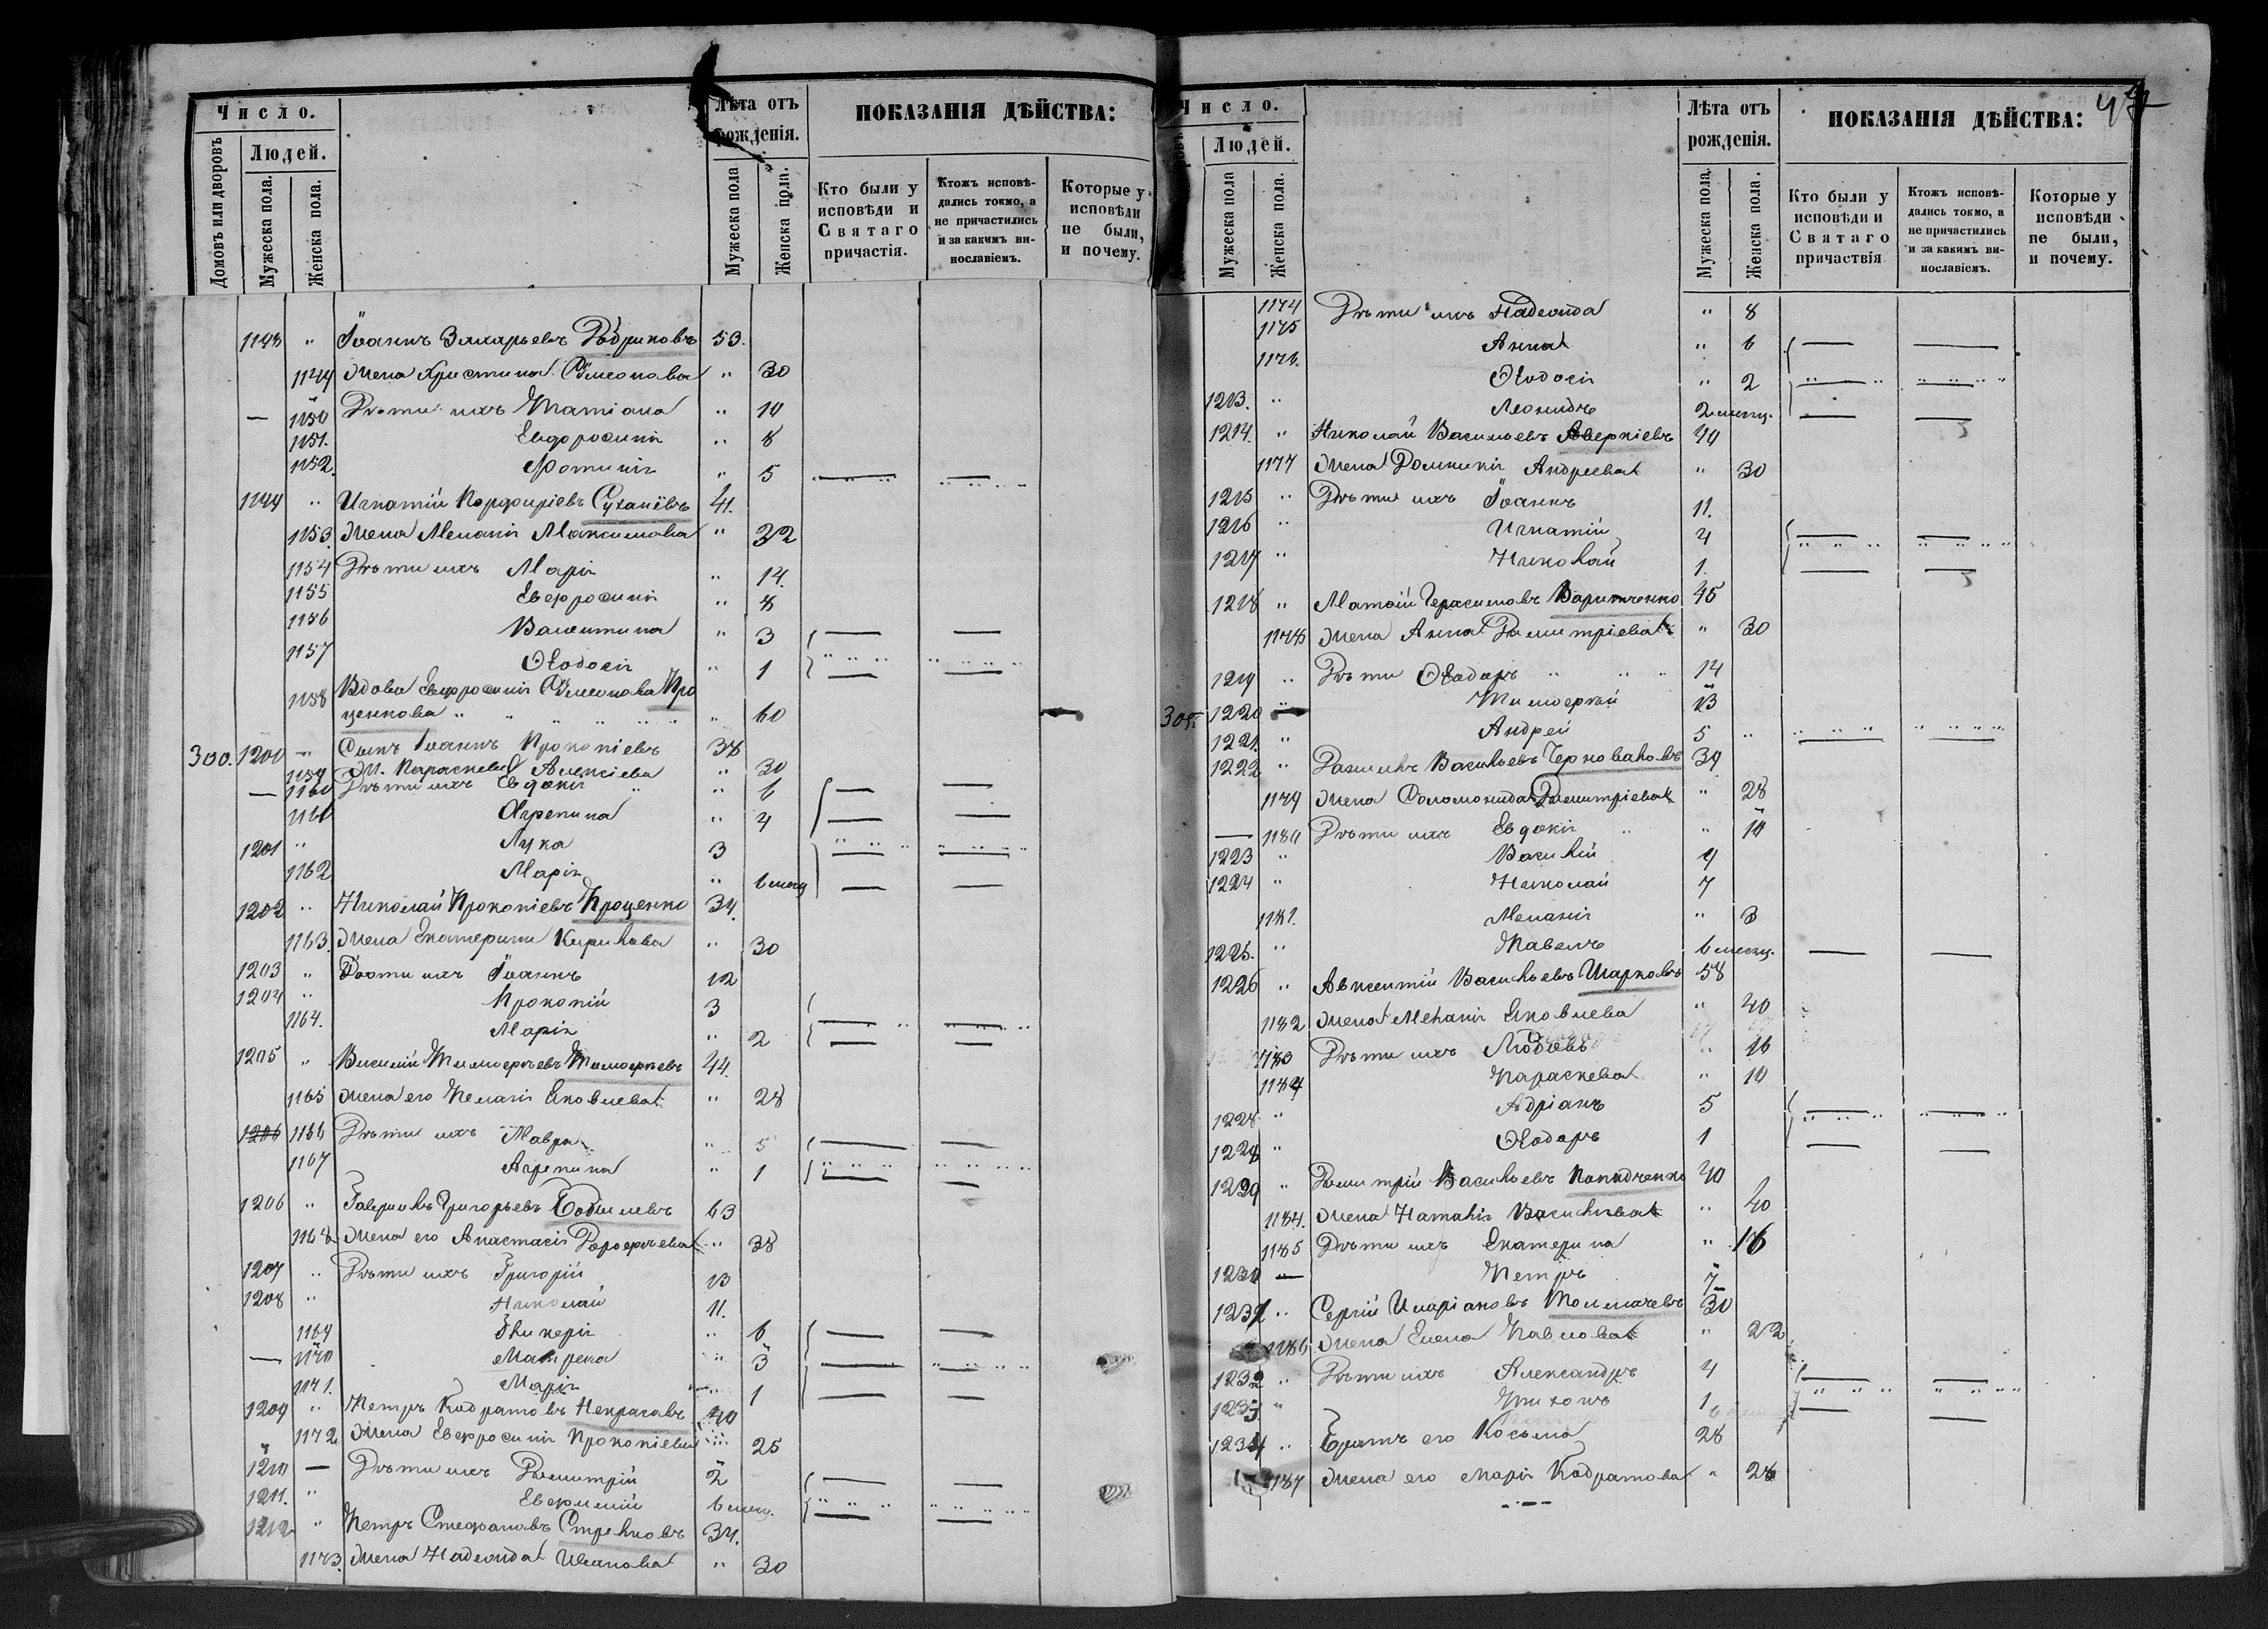 Число.
Людей.
Домовъ или дворовъ
Мужеска пола.
Женска пола.
Лѣта отъ рожденія.
Мужеска пола
Женска пола.
ПОКАЗАНІЯ ДѢЙСТВА:
Кто были у исповѣди и Святаго причастія.
Ктожъ исповѣдались токмо, а не причастились и за какимъ винославіемъ.
Которые у исповѣди не были, и почему.
Іоаннъ Захарьевъ 53.
1149 Жена Христина Симеонова " 30
— 1150 Дѣти ихъ Татіана " 10
1151. Евфросинія " 8
1152. Фотинія " 5
" Игнатій Порфиріевъ 41.
1153. Жена Меланія Максимова " 32
1154 Дѣти ихъ Марія " 14.
1155 Евфросинія " 8
1156 Валентина " 3
1157 Ѳеодосія " 1
1158 Вдова Евфросинія Симеонова Про
ценкова " 60
300. 1200 — Сынъ Іоаннъ Прокопіевъ 38
1159 Ж. Параскева Алексіева " 30
— 1160 Дѣти ихъ Евдокія " 6
1161 Агрепина " 4
1201 " Лука 3
1162 Марія " 6 мѣсц
1202 " Николай Прокопіевъ Проценко 34.
1163. Жена Екатерина Кирилова " 30
1203 " Дѣти ихъ Іоаннъ 12
1204 " Прокопій 3
1164. Марія " 2
1205 " Василій Тимоѳеевъ Тимоѳеевъ 44.
1165 Жена его Пелагія Яковлева " 28
1166 Дѣти ихъ Мавра " 5
1167 Агрепина " 1
1206 " Гавріилъ Григорьевъ 63
1168 Жена его Анастасія Дороѳеева " 38
1207 " Дѣти ихъ Григорій 13
1208 " Николай 11.
1169 Гликерія " 6
— 1170 Матрена " 3
1171. Марія " 1
1209 " Петръ Кодратовъ Некрасовъ 40
1172 Жена Евфросинія Прокопіева " 25
1210 — Дѣти ихъ Димитрій 2
1211. " Евѳимій 6 мѣсц.
1212 " Петръ Стефановъ Стрелковъ 34.
1173. Жена Надежда Иванова " 30
Число.
Людей.
Мужеска пола
Женска пола.
Лѣта отъ рожденія.
Мужеска пола.
Женска пола.
ПОКАЗАНІЯ ДѢЙСТВА:
Кто были у исповѣди и Святаго причаствія
Ктожъ исповѣдались токмо, а не причастились и за какимъ винославіемъ.
Которые у исповѣди не были, и почему.
1174 Дѣти ихъ Надежда " 8
1175 Анна " 6
1176. Ѳеодосія " 2
1213. " Леонидъ 2 мѣсц.
1214. " Николай Васильевъ Аверкіевъ 40
1177 Жена Домникія Андреева " 30
1215 " Дѣти ихъ Іоаннъ 11.
1216 " Игнатій 4
1217 " Николай 1.
1218 " Матѳій Герасимовъ 45
1178 Жена Анна Димитріева " 30
1219 " Дѣти Ѳеодоръ 14
305. 1220 — Тимоѳей 13
1221. " Андрей 5
1222 " Васильевъ 39
1179 Жена Соломонида Димитріева " 28
— 1180 Дѣти ихъ Евдокія " 10
1223 " Василій 9
1224 " Николай 7
1181. Меланія " 3
1225. " Павелъ 6 мѣсц.
1226 " Авксентій Васильевъ Шарковъ 58
1182 Жена Меланія Яковлева " 40
1183 Дѣти ихъ Любовь " 16
1184 Параскева " 10
1228 " Адріанъ 5
1228 " Ѳеодоръ 1
" Димитрій Васильевъ 40
1184. Жена Наталія Васильева " 40
1185 Дѣти ихъ Екатерина " 16
— Петръ 7
1231 " Сергій Иларіановъ Толмачевъ 30
1186 Жена Елена Павлова " 22
1232 " Дѣти ихъ Александръ 4
1233 " Тихонъ 1
1234 " Братъ его Косьма 28
1187 Жена его Марія Кодратова " 28